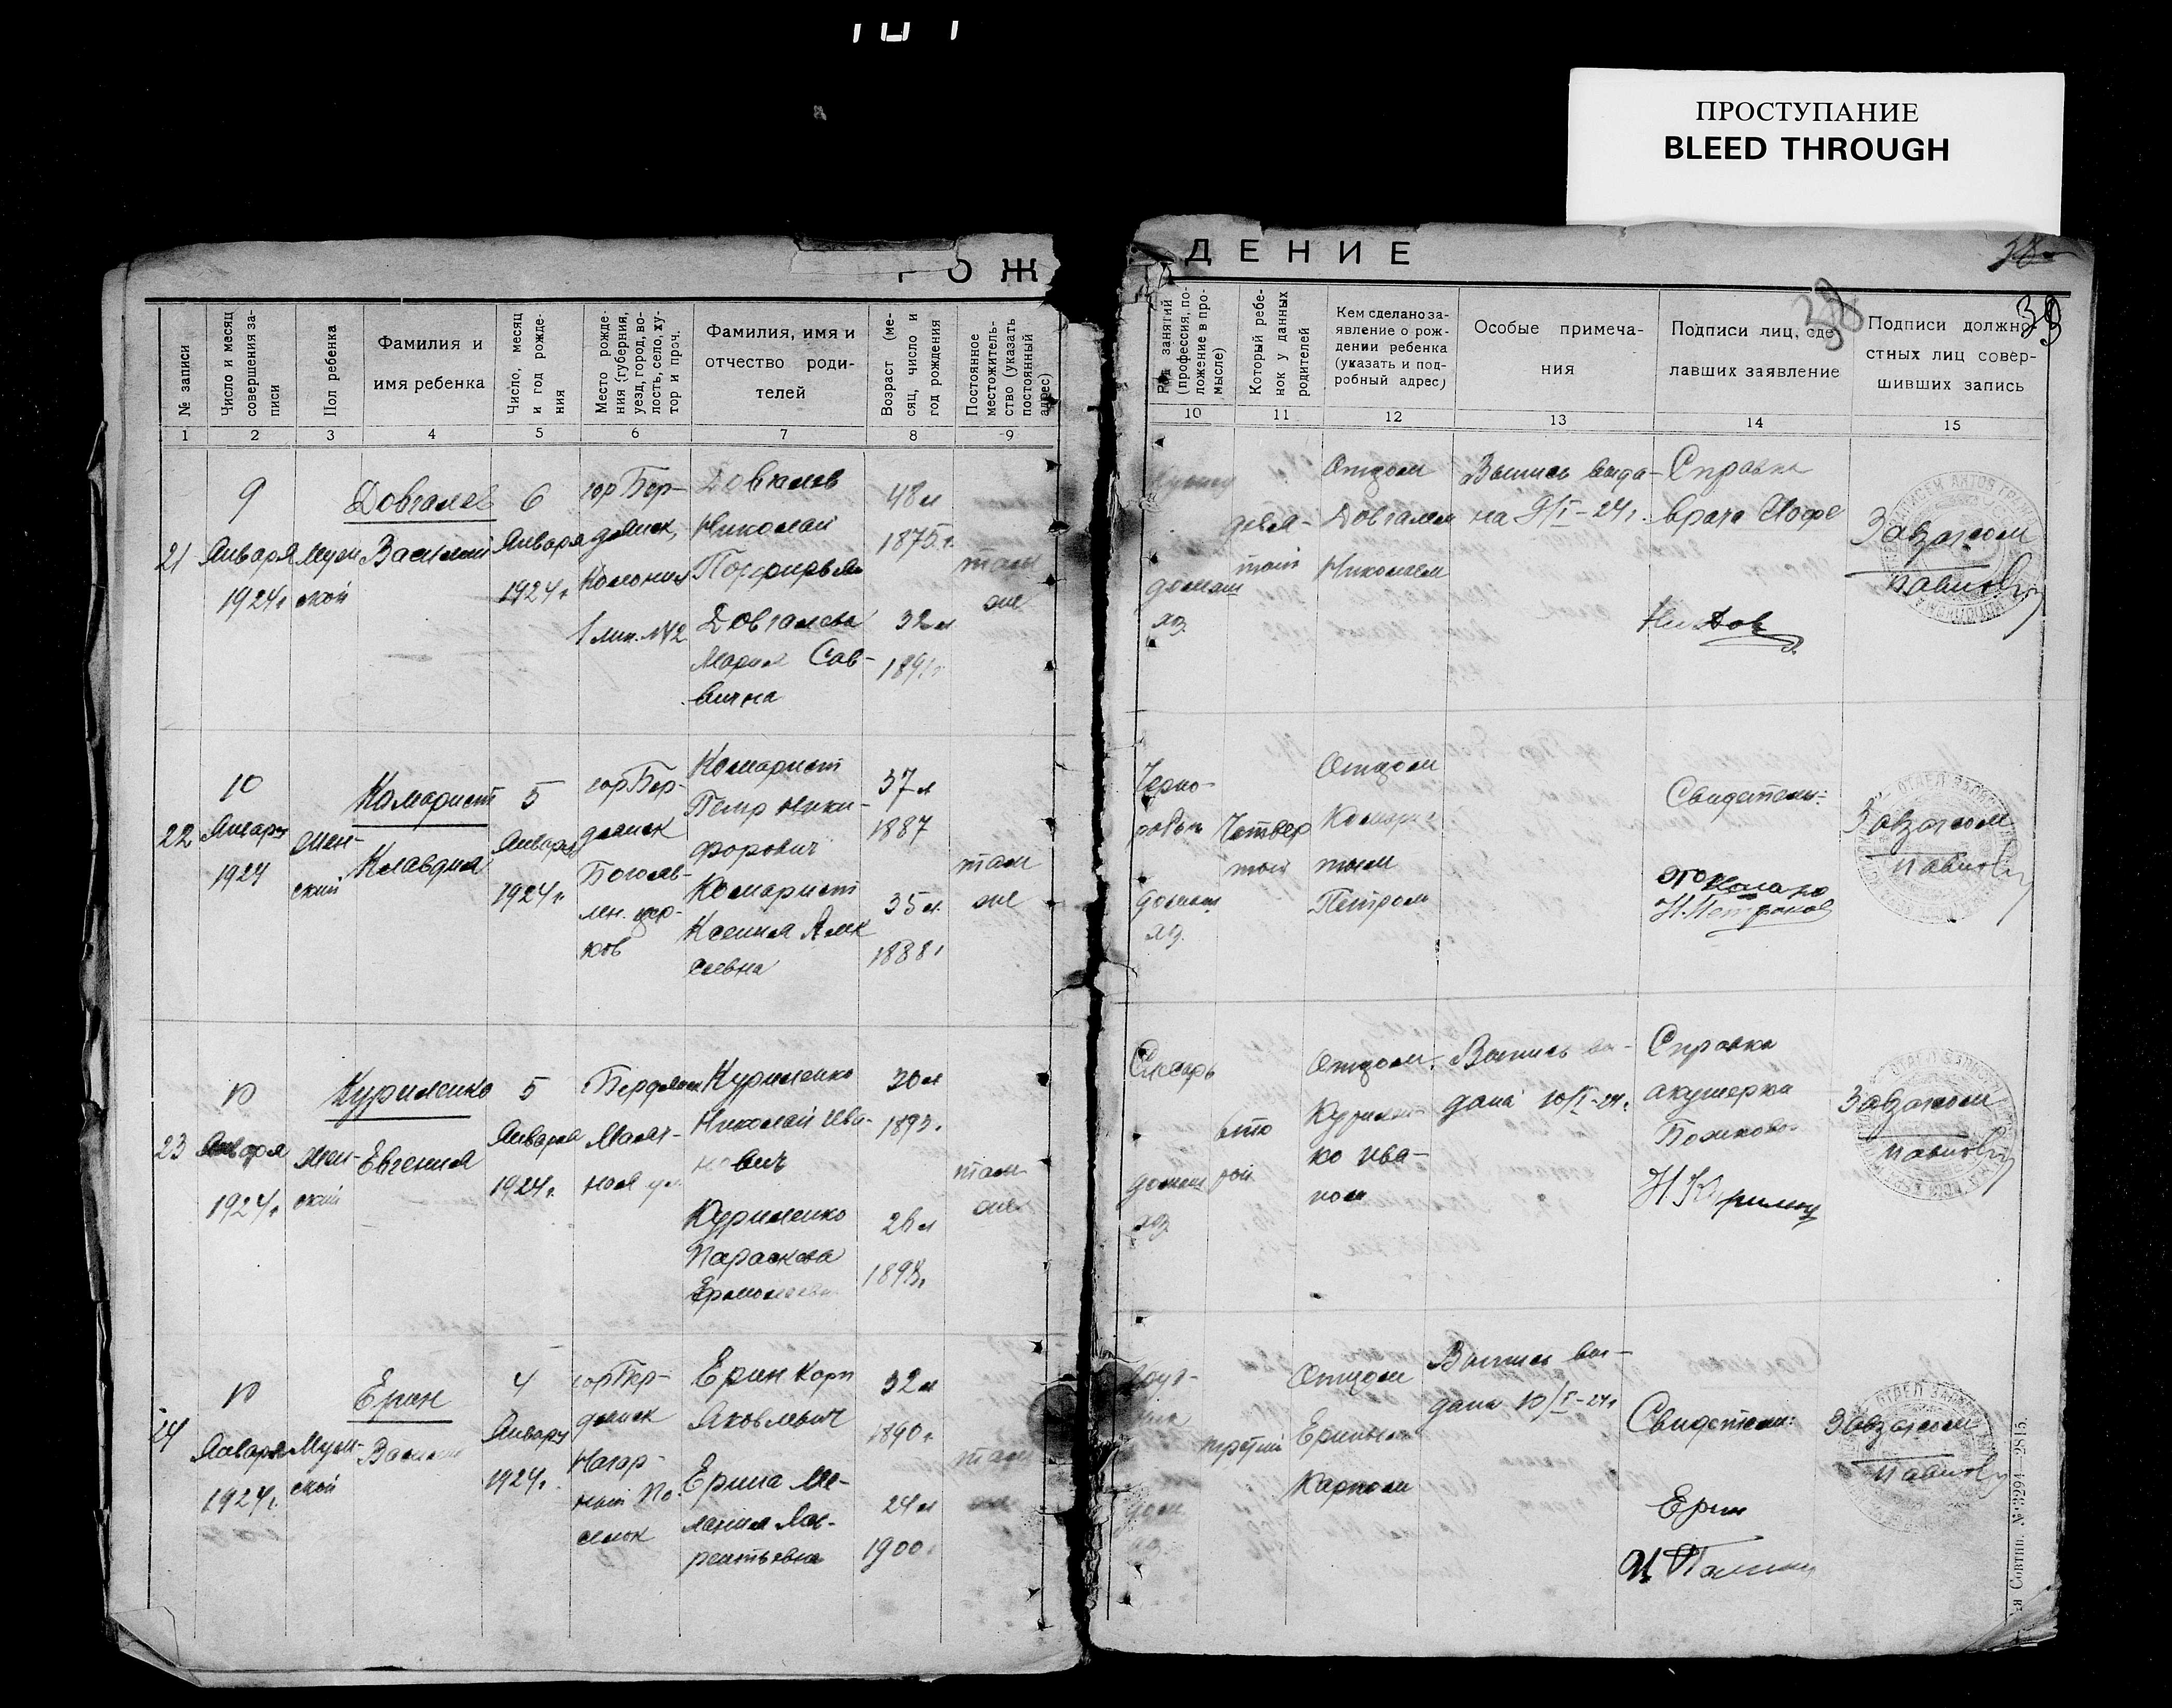 ПРОСТУПАНИЕ
BLEED THROUGH
РОЖДЕНИЕ
38
39
№ записи
Число и месяц совершения записи
Пол ребенка
Фамилия и
имя ребенка
Число, месяц и год рождения
Место рождения (губерния, уезд, город, волость, село, хутор и проч.
Фамилия, имя и
отчество роди-
телей
Возраст (месяц, число и год рождения
Постоянное местожительство (указать постоянный адрес)
Род занятий (профессия, положение в промысле)
Который ребенок у данных родителей
Кем сделано за-
явление о рож-
дении ребенка
(указать и под-
робный адрес)
Особые примеча-
ния
Подписи лиц, сде-
лавших заявление
Подписи должно-
стных лиц совер-
шивших запись
1 2 3 4 5 6 7 8 9 10 11 12 13 14 15
21
9
Января
1924 г
Муж-
ской
Довгалев
Василий
6
Января
1924 г.
гор Бер-
дянск,
Колония
1 лин. №2
Довгалев
Николай
Порфирьев
Довгалева
Мария Сав-
вична
48 л
1875 г.
32 л
1891 г
там
же
домаш
хоз.
девя-
тый
Отцом
Довгалем
Николаем
Выпись выда-
на 9/I-24 г.
Справка
врача Иофе
Завзагсом
22
10
Января
1924
Жен-
ский
Комарист
Клавдия
5
Января
1924 г.
гор Бер-
дянск
Боголь-
лен. цер-
ков
Комарист
Петр Ники-
форович
Комарист
Ксения Алек
сеевна
37 л
1887
35 л.
1888 г
там
же
Черно-
рабоч
домаш
хоз.
Четвер
тый
Отцом
Комарис
тым
Петром
Свидетели:
Завзагсом
23
10
Января
1924 г.
Жен-
ский
Куриленко
Евгения
5
Января
1924 г.
Бердянск
Малят-
ная ул.
Куриленко
Николай Ива-
нович
Куриленко
Параскева
Ермолаевна
30 л
1893 г.
26 л
1898 г.
там
же
Слесарь
домаш
хоз
вто
рой
Отцом
Курилен-
ко Ива-
ном
Выпись вы-
дана 10/I-24 г.
Справка
акушерки
Завзагсом
24
10
Января
1924 г.
Муж-
ской
Ерин
Василий
4
Января
1924 г.
гор Бер-
дянск
Нагор-
ный По-
селок
Ерин Карп
Яковлевич
Ерина Ме-
лания Лав-
рентьевна
32 л
1890 г.
24 л
1900 г.
там
же
дом
хоз.
третий
Отцом
Ериным
Карпом
Выпись вы-
дана 10/I-24 г
Свидетели:
Ерин
Завзагсом